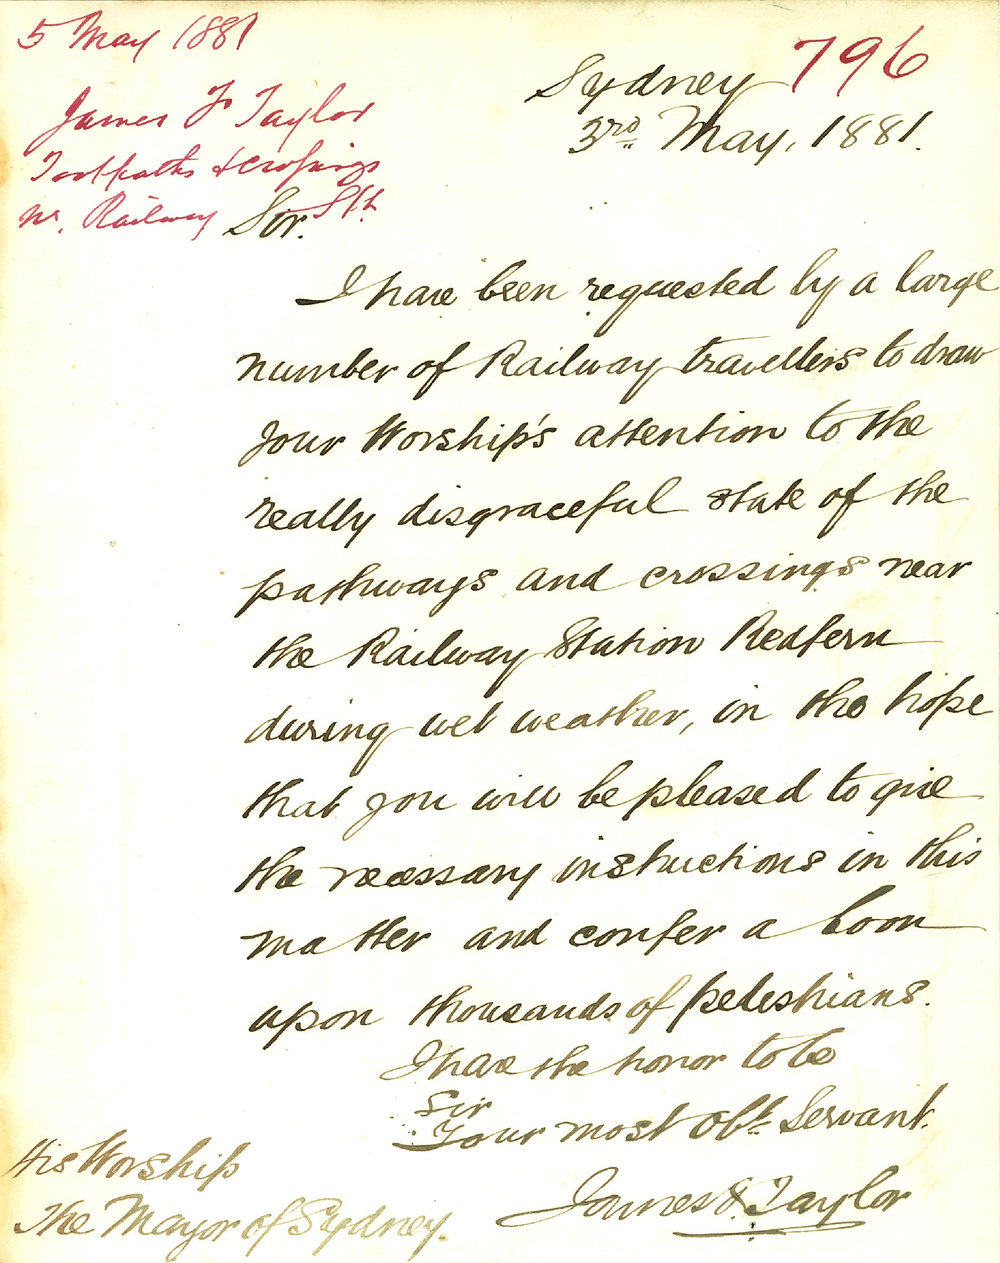 5 May 1881
796
James F Taylor
Footpaths & crossings
nr. Railway Stn
Sydney
3rd May, 1881.
Sir.
I have been requested by a large
number of Railway travellers to draw
your Worship's attention to the
really disgraceful state of the
pathways and crossings near
the Railway Station Redfern
during wet weather, in the hope
that you will be pleased to give
the necessary instructions in this
matter and confer a boon
upon thousands of pedestrians.
I have the honor to be
Sir
Your most obt. Servant.
James Taylor
His Worship
The Mayor of Sydney.